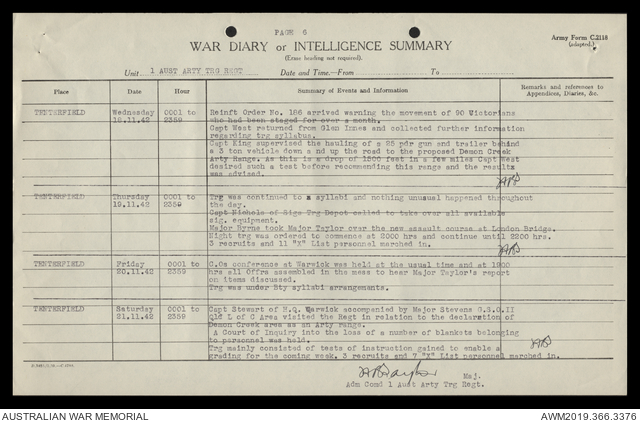 PAGE 6
Army Form C.2118
(adapted.)
WAR DIARY or INTELLIGENCE SUMMARY
(Erase heading not required).
Unit 1 AUST ARTY TRG REGT Date and Time.—From To
Place Date Hour Summary of Events and Information Remarks and references to Appendices, Diaries, &c.
TENTERFIELD Wednesday 18.11.42 0001 to 2359 Reinft Order No. 186 arrived warning the movement of 90 Victorians
who had been staged for over a month.
Capt West returned from Glen Innes and collected further information
regarding trg syllabus.
Capt King supervised the hauling of a 25 pdr gun and trailer behind
a 3 ton vehicle down and up the road to the proposed Demon Creek
Arty Range. As this is a drop of 1500 feet in a few miles Capt West
desired such a test before recommending this range and the results
was advised.
TENTERFIELD Thursday 19.11.42 0001 to 2359 Trg was continued to a syllabi and nothing unusual happened throughout
the day.
Capt Nichols of Sigs Trg Depot called to take over all available
sig. equipment.
Major Byrne took Major Taylor over the new assault course at London Bridge.
Night trg was ordered to commence at 2000 hrs and continue until 2200 hrs.
3 recruits and 11 "X" List personnel marched in.
TENTERFIELD Friday 20.11.42 0001 to 2359 C.Os conference at Warwick was held at the usual time and at 1900
hrs all Offrs assembled in the mess to hear Major Taylor's report
on items discussed.
Trg was under Bty syllabi arrangements.
TENTERFIELD Saturday 21.11.42 0001 to 2359 Capt Stewart of H.Q. Warwick accompanied by Major Stevens G.S.O.II
Qld L of C Area visited the Regt in relation to the declaration of
Demon Creek area as an Arty range.
A Court of Inquiry into the loss of a number of blankets belonging
to personnel was held.
Trg mainly consisted of tests of instruction gained to enable a
grading for the coming week. 3 recruits and 7 "X" List personnel marched in.
Maj.
Adm Comd 1 Aust Arty Trg Regt.
AUSTRALIAN WAR MEMORIAL
AWM2019.366.3376